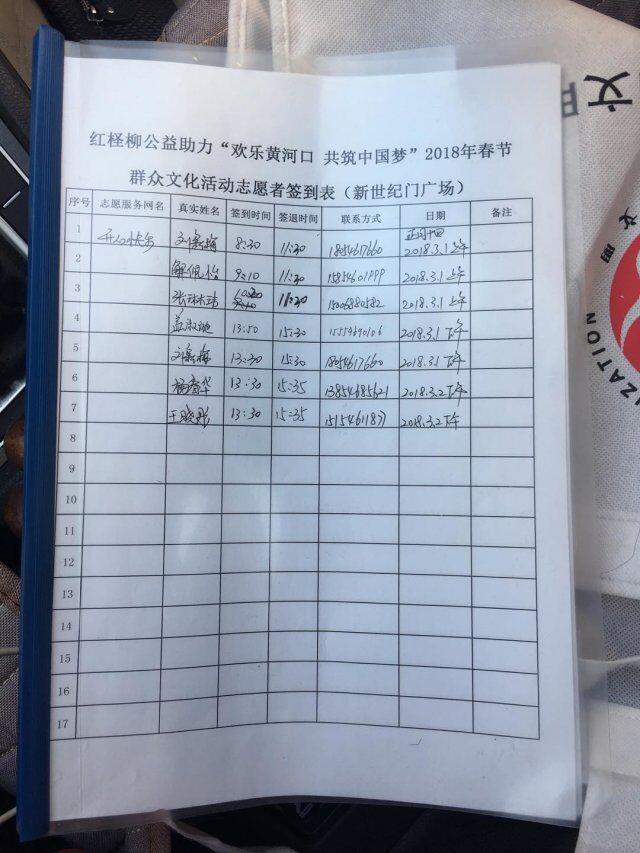 红柽柳公益助力“欢乐黄河口 共筑中国梦”2018年春节
群众文化活动志愿者签到表（新世纪门广场）
序号 志愿服务网名 真实姓名 签到时间 签退时间 联系方式 日期 备注
1 8:30 11:30 18054617660 正月十四 2018.3.1上午
2 9:10 11:30 2018.3.1上午
3 张琳琳 10:20 11:20 15006880582 2018.3.1上午
4 13:50 15:30 2018.3.1下午
5 13:30 15:30 18054617660 2018.3.1下午
6 杨春华 13:30 15:35 13854685621 2018.3.2下午
7 王晓彤 13:30 15:35 2018.3.2下午
8
9
10
11
12
13
14
15
16
17
文明
IZATION